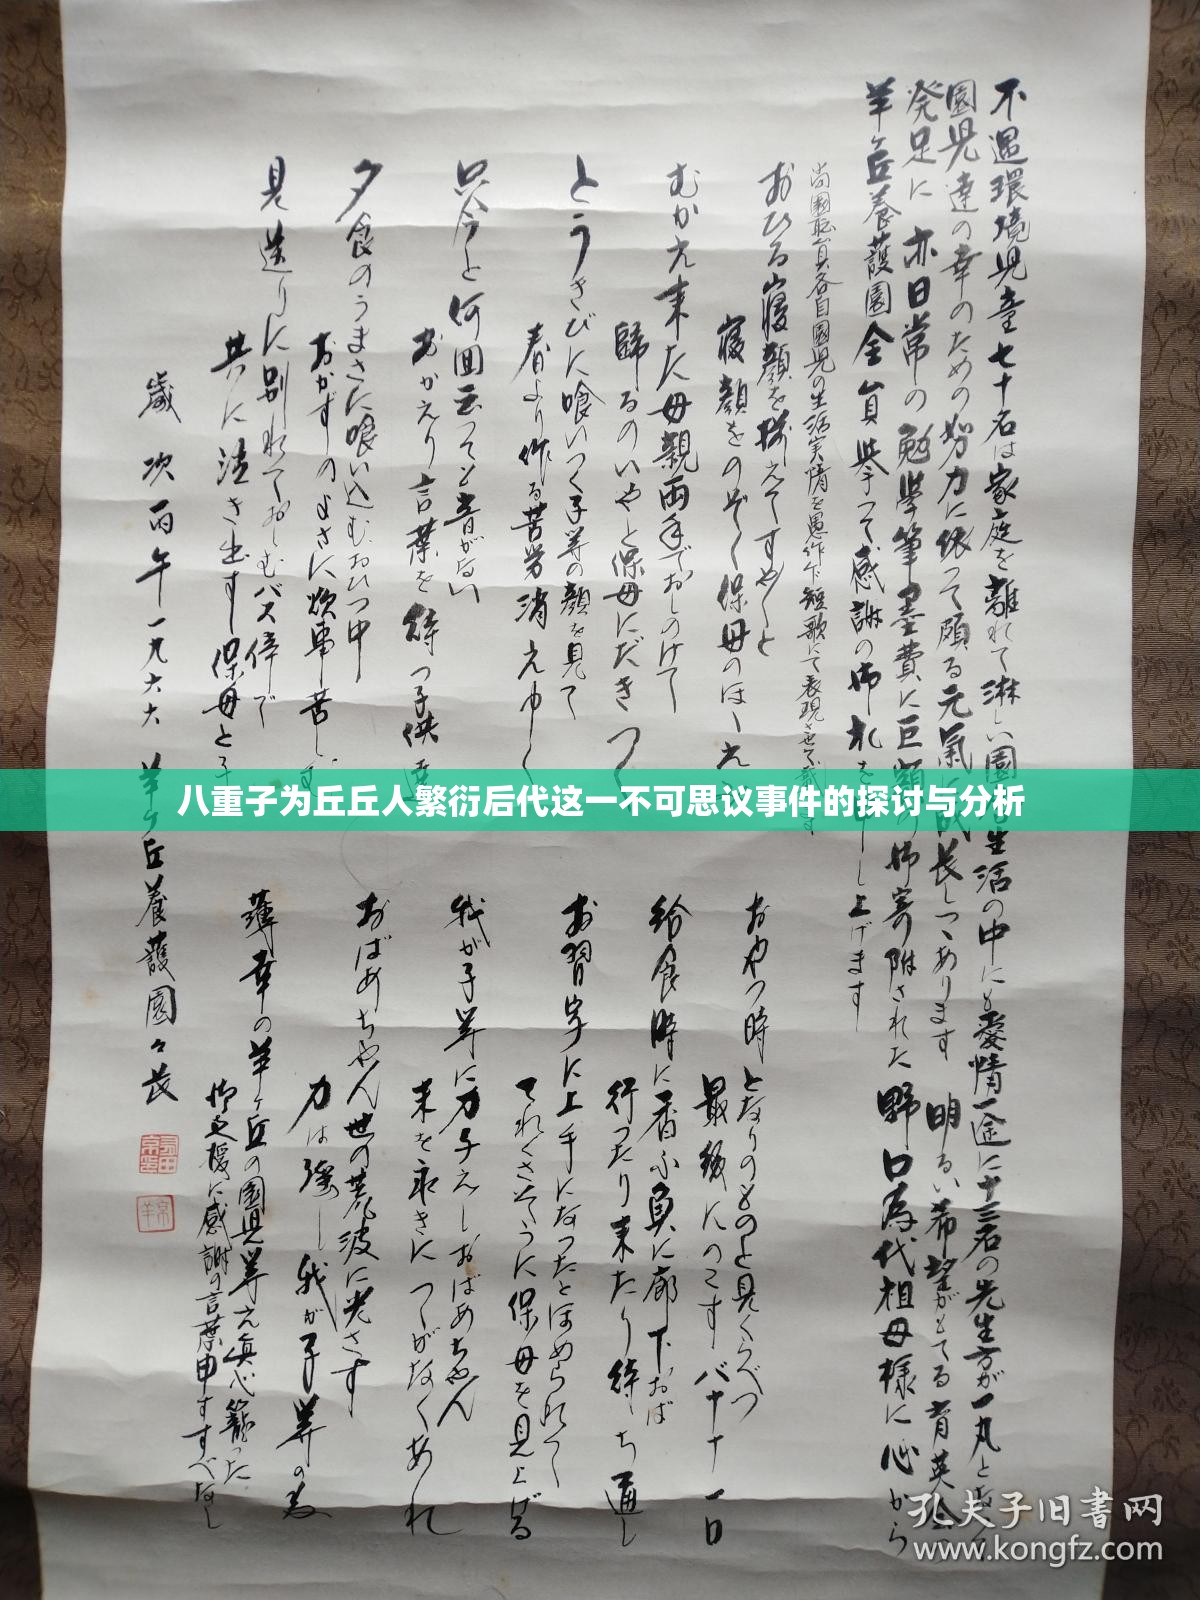 不遇環境児童七十名は家庭を離れて淋しい園 生活の中にも愛情一途に十三名の先生方が一丸となって
園児達の幸のための努力に依って頗る元氣に成長しつゝあります 明るい希望がもてる育英会
発足に亦日常の勉学筆墨費に巨額の御寄附された野口為代祖母様に心から
羊ヶ丘養護園全員挙って感謝の御礼を申し上げます
尚園職員各自園児の生活実情を愚作乍短歌にて表現させて戴きます
おひる寝顔を揃えてすやすやと
寝顔をのぞく保母のほゝえみ
むかえ来た母親両手でおしのけて
歸るのいやと保母にだきつく
とうきびに喰いつく子等の顔を見て
春より作る苦労消えゆく
只今と何回云っても音がない
おかえり言葉を待つ子供達
夕食のうまさに喰い込むおひつ中
おかずのよさに炊事苦し
見送りに別れておしむバス停で
共に泣き出す保母と子
歳次丙午一九六六 羊ヶ丘養護園々長
おやつ時となりのものと見くらべつ
最後にのこす八十一日
給食時に香に負に廊下おば
行ったり来たり待ち通し
お習字に上手になったとほめられて
てれくさそうに保母を見上げる
我が子等に力子えしおばあちゃん
来を永きにつゝがなくあれ
おばあちゃん世の荒波に光さす
力は強し我が子等の為
薄幸の羊ヶ丘の園児等え真心籠った
御支援に感謝の言葉申すすべなし
八重子为丘丘人繁衍后代这一不可思议事件的探讨与分析
孔夫子旧书网
www.kongfz.com